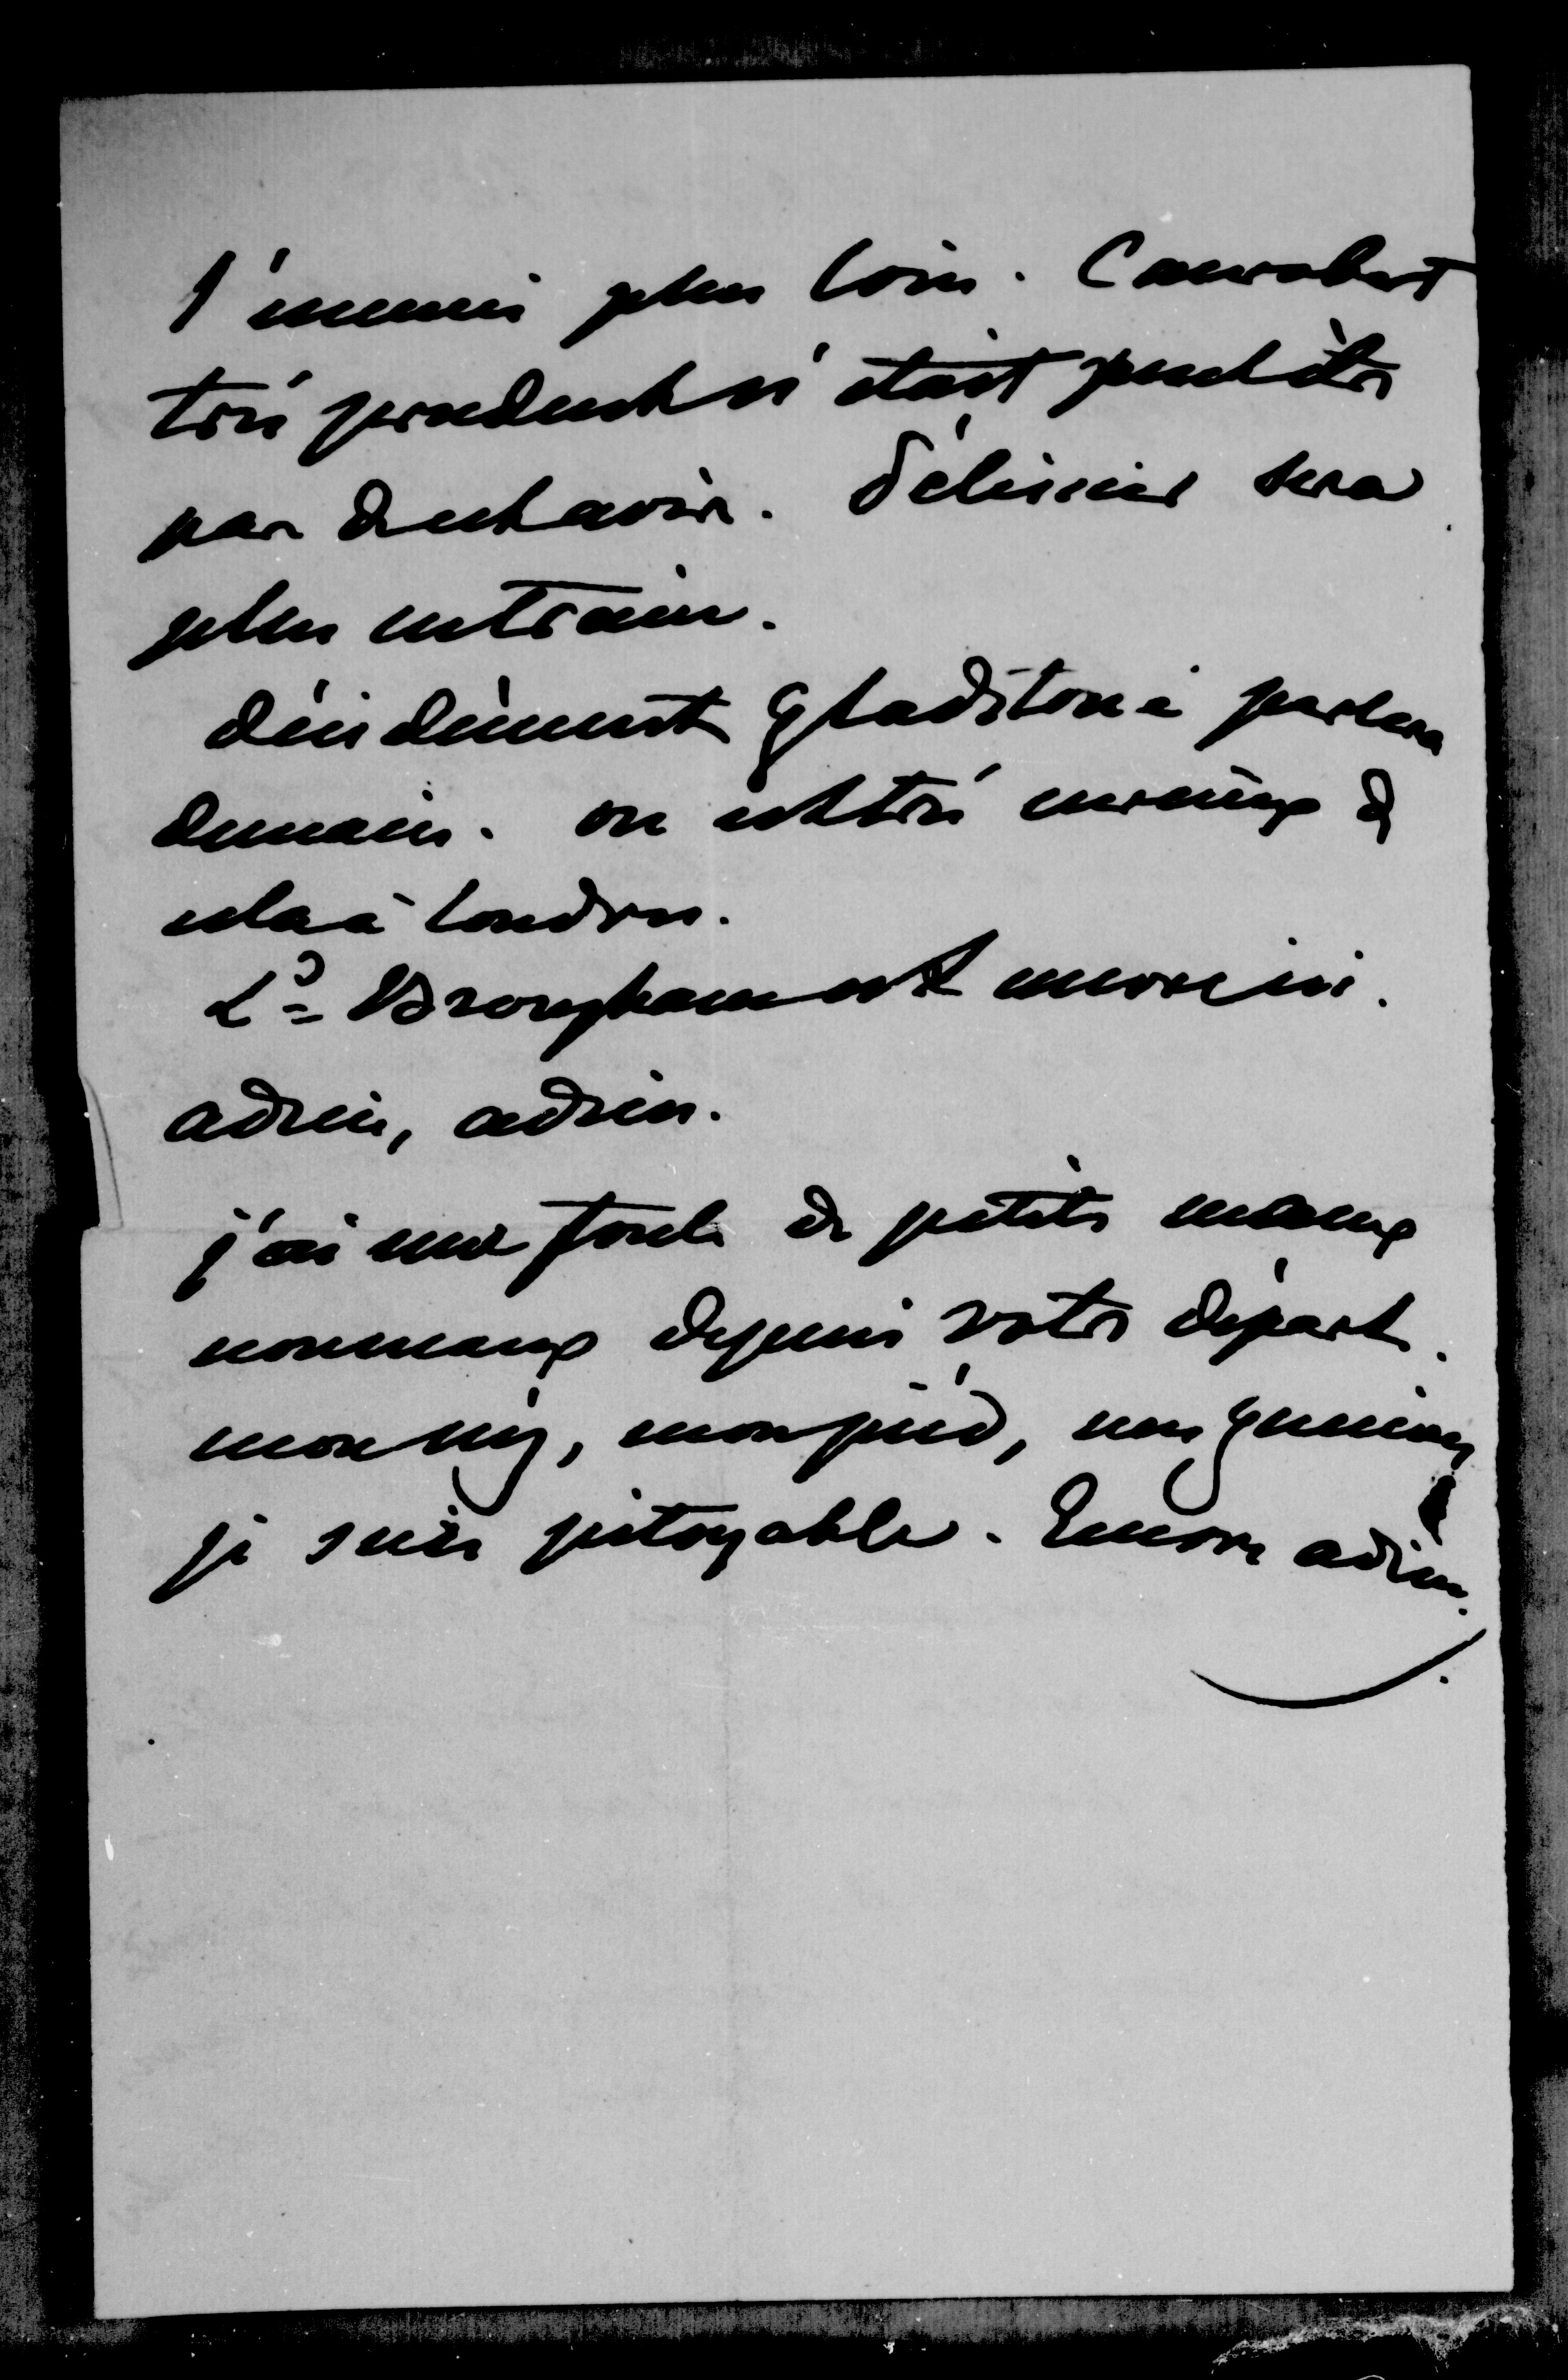 l'ennemi plus loin. Canrobert
très prudent n'était peut être
pas de cet avis. Pélissier sera
plus entrain.
décidement Gladstone parlera
demain. on est très curieux de
cela à Londres.
Ld Brougham est morici.
adieu, adieu.
j'ai une foule de petits maux
nouveaux depuis votre départ.
mon nez, mon pied, mes genoux
je suis pitoyable. Encore adieu.